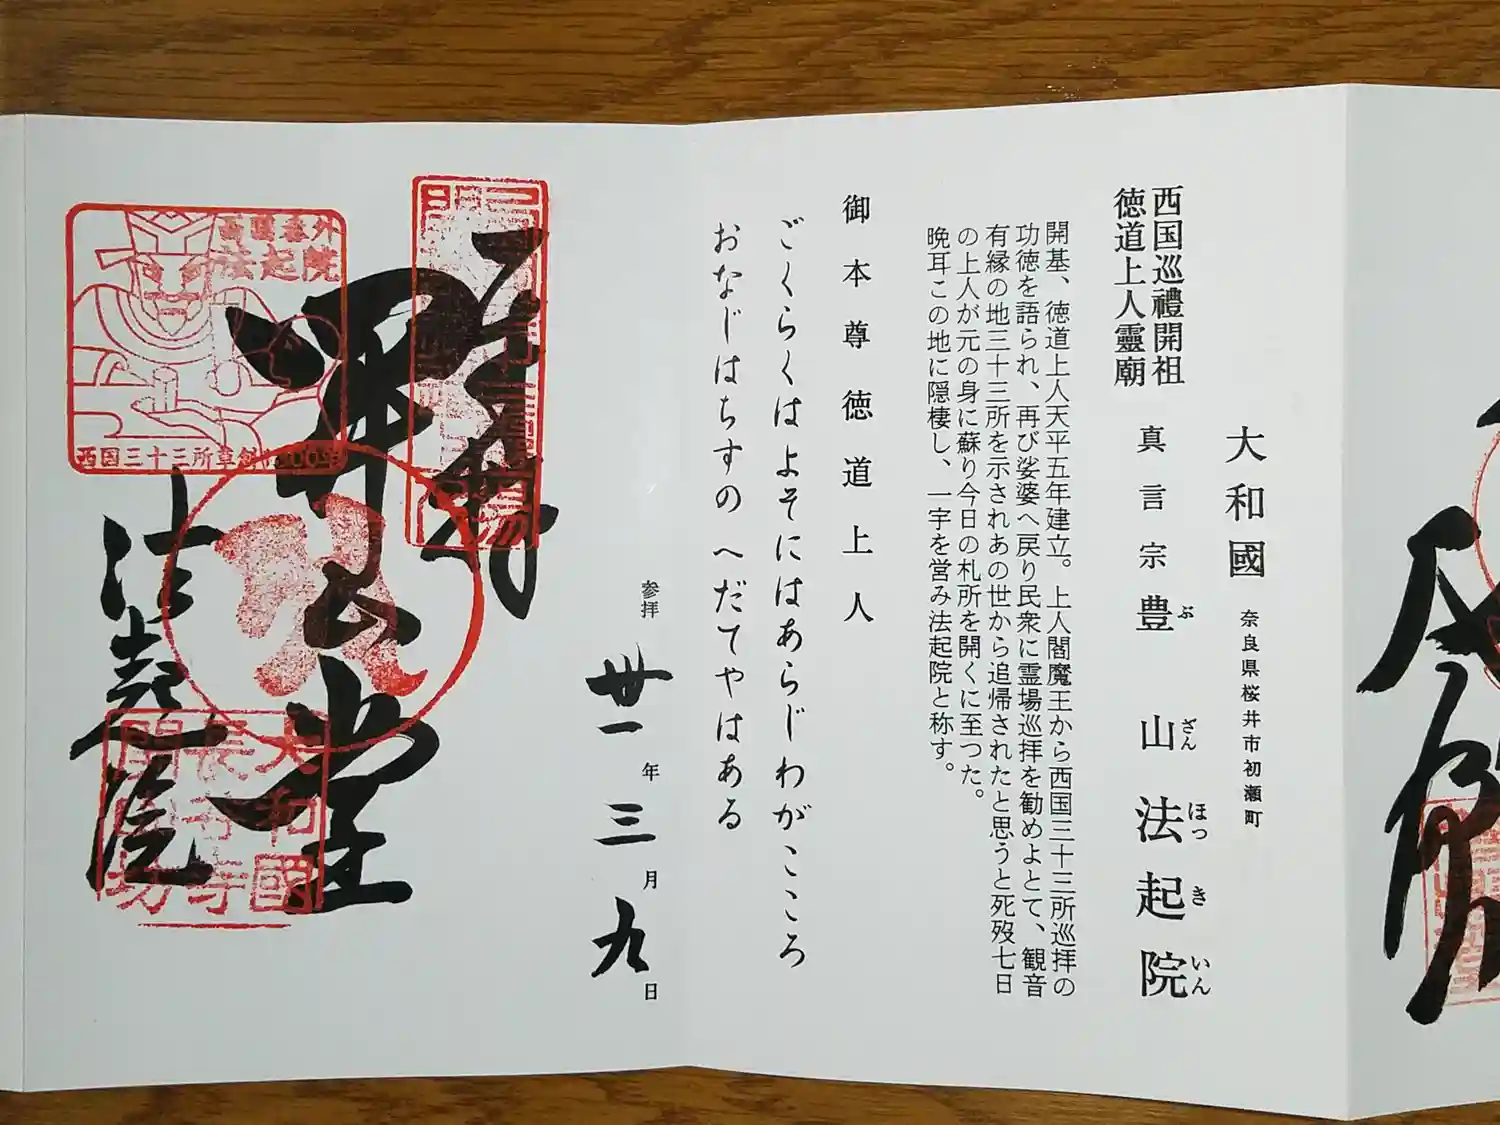 大和國 奈良県桜井市初瀬町
西国巡禮開祖
徳道上人靈廟
真言宗 豊山 法起院
ぶ ざん ほっ き いん
開基、徳道上人天平五年建立。上人閻魔王から西国三十三所巡拝の
功徳を語られ、再び娑婆へ戻り民衆に霊場巡拝を勧めよとて、観音
有縁の地三十三所を示されあの世から追帰されたと思うと死歿七日
の上人が元の身に蘇り今日の札所を開くに至つた。
晩耳この地に隠棲し、一宇を営み法起院と称す。
御本尊 徳道上人
ごくらくはよそにはあらじわがこころ
おなじはちすの へだてやはある
参拝 卅一年三月九日
奉拝
開山堂
法起院
西国番外
法起院
西国三十三所草創1300年
大和國
長谷寺